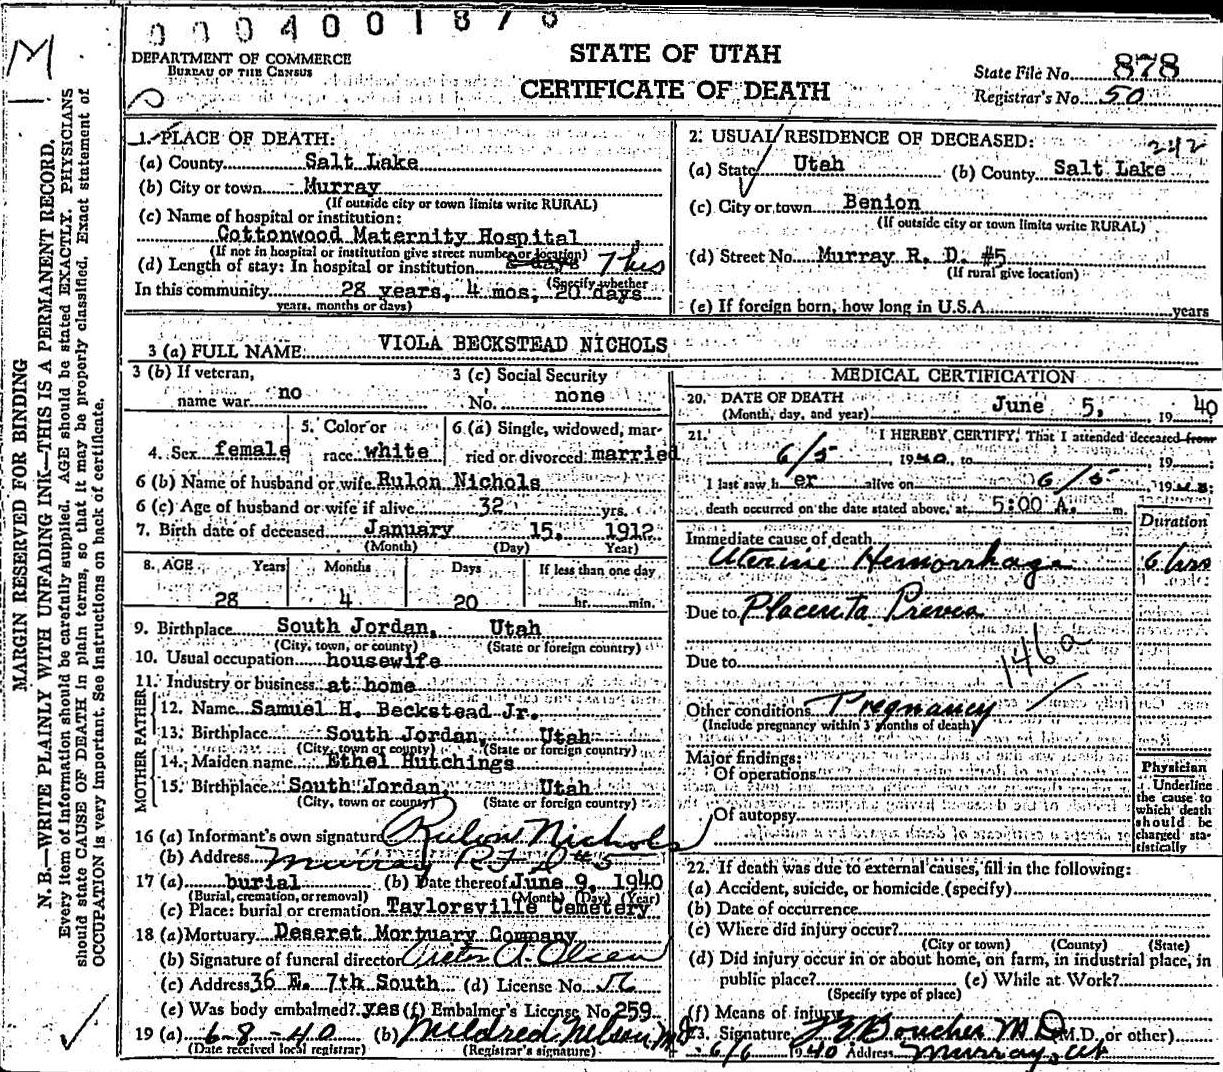 0004001878
M
DEPARTMENT OF COMMERCE
BUREAU OF THE CENSUS
STATE OF UTAH
CERTIFICATE OF DEATH
State File No. 878
Registrar's No. 50
MARGIN RESERVED FOR BINDING
N. B.—WRITE PLAINLY WITH UNFADING INK—THIS IS A PERMANENT RECORD.
Every item of information should be carefully supplied. AGE should be stated EXACTLY. PHYSICIANS
should state CAUSE OF DEATH in plain terms, so that it may be properly classified. Exact statement of
OCCUPATION is very important. See instructions on back of certificate.
1. PLACE OF DEATH:
(a) County Salt Lake
(b) City or town Murray
(If outside city or town limits write RURAL)
(c) Name of hospital or institution:
Cottonwood Maternity Hospital
(If not in hospital or institution give street number or location)
(d) Length of stay: In hospital or institution 7 hrs
(Specify whether
In this community 28 years, 4 mos, 20 days
years, months or days)
2. USUAL RESIDENCE OF DECEASED:
242
(a) State Utah (b) County Salt Lake
(c) City or town Benion
(If outside city or town limits write RURAL)
(d) Street No. Murray R. D. #5
(If rural give location)
(e) If foreign born, how long in U.S.A. years
3 (a) FULL NAME VIOLA BECKSTEAD NICHOLS
3 (b) If veteran,
name war no
3 (c) Social Security
No. none
4. Sex female
5. Color or
race white
6 (a) Single, widowed, mar-
ried or divorced married
6 (b) Name of husband or wife Rulon Nichols
6 (c) Age of husband or wife if alive 32 yrs.
7. Birth date of deceased January 15, 1912
(Month) (Day) Year)
8. AGE Years Months Days If less than one day
28 4 20 hr. min.
9. Birthplace South Jordan, Utah
(City, town, or county) (State or foreign country)
10. Usual occupation housewife
11. Industry or business at home
FATHER
12. Name Samuel H. Beckstead Jr.
13. Birthplace South Jordan, Utah
(City, town or county) (State or foreign country)
MOTHER
14. Maiden name Ethel Hutchings
15. Birthplace South Jordan, Utah
(City, town or county) (State or foreign country)
16 (a) Informant's own signature Rulon Nichols
(b) Address Murray RFD #5
17 (a) burial (b) Date thereof June 9, 1940
(Burial, cremation, or removal) (Month) (Day) (Year)
(c) Place: burial or cremation Taylorsville Cemetery
18 (a) Mortuary Deseret Mortuary Company
(b) Signature of funeral director Victor A. Olsen
(c) Address 36 E. 7th South (d) License No.
(e) Was body embalmed? yes (f) Embalmer's License No 259
19 (a) 6-8-40 (b) Mildred Nelson, MD
(Date received local registrar) (Registrar's signature)
MEDICAL CERTIFICATION
20. DATE OF DEATH
(Month, day, and year) June 5, 1940
21. I HEREBY CERTIFY, That I attended deceased from
6/5 1940, to 19
I last saw her alive on 6/5 1940
death occurred on the date stated above, at 5:00 A. m.
Duration
Immediate cause of death
Uterine Hemorrhage 6 hrs
Due to Placenta Previa
Due to
146a
Other conditions Pregnancy
(Include pregnancy within 3 months of death)
Major findings:
Of operations
Of autopsy
Physician
Underline
the cause to
which death
should be
charged sta-
tistically
22. If death was due to external causes, fill in the following:
(a) Accident, suicide, or homicide (specify)
(b) Date of occurrence
(c) Where did injury occur?
(City or town) (County) (State)
(d) Did injury occur in or about home, on farm, in industrial place, in
public place? (e) While at Work?
(Specify type of place)
(f) Means of injury
23. Signature Boucher M D (M.D. or other)
6/6 1940 Address Murray, Ut